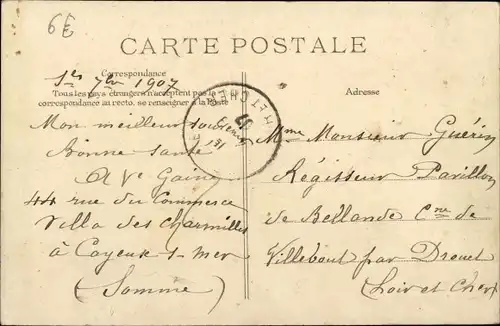 6E
CARTE POSTALE
Correspondance
Tous les pays étrangers n'acceptent pas la
correspondance au recto, se renseigner à la Poste
Adresse
7bre 1907
Mon meilleur souvenir
Bonne santé
A Ve Gaine
44 rue du Commerce
Villa des Charmilles
à Cayeux s-mer
(Somme)
07
Mme Monsieur Guérin
Régisseur Pavillon
de Bellande Cne de
Villebout par Droué
Loir et Cher